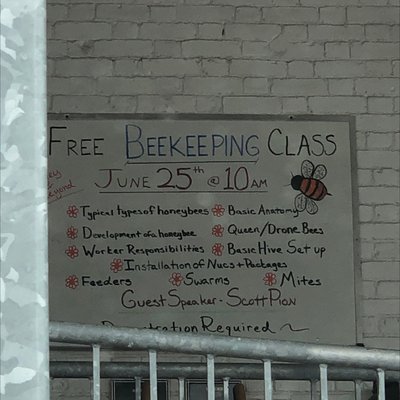 FREE BEEKEEPING CLASS
JUNE 25th @ 10 AM
Typical types of honeybees
Basic Anatomy
Development of a honeybee
Queen/Drone Bees
Worker Responsibilities
Basic Hive Set up
Installation of Nucs + Packages
Feeders
Swarms
Mites
Guest Speaker - Scott Pion
Registration Required ~